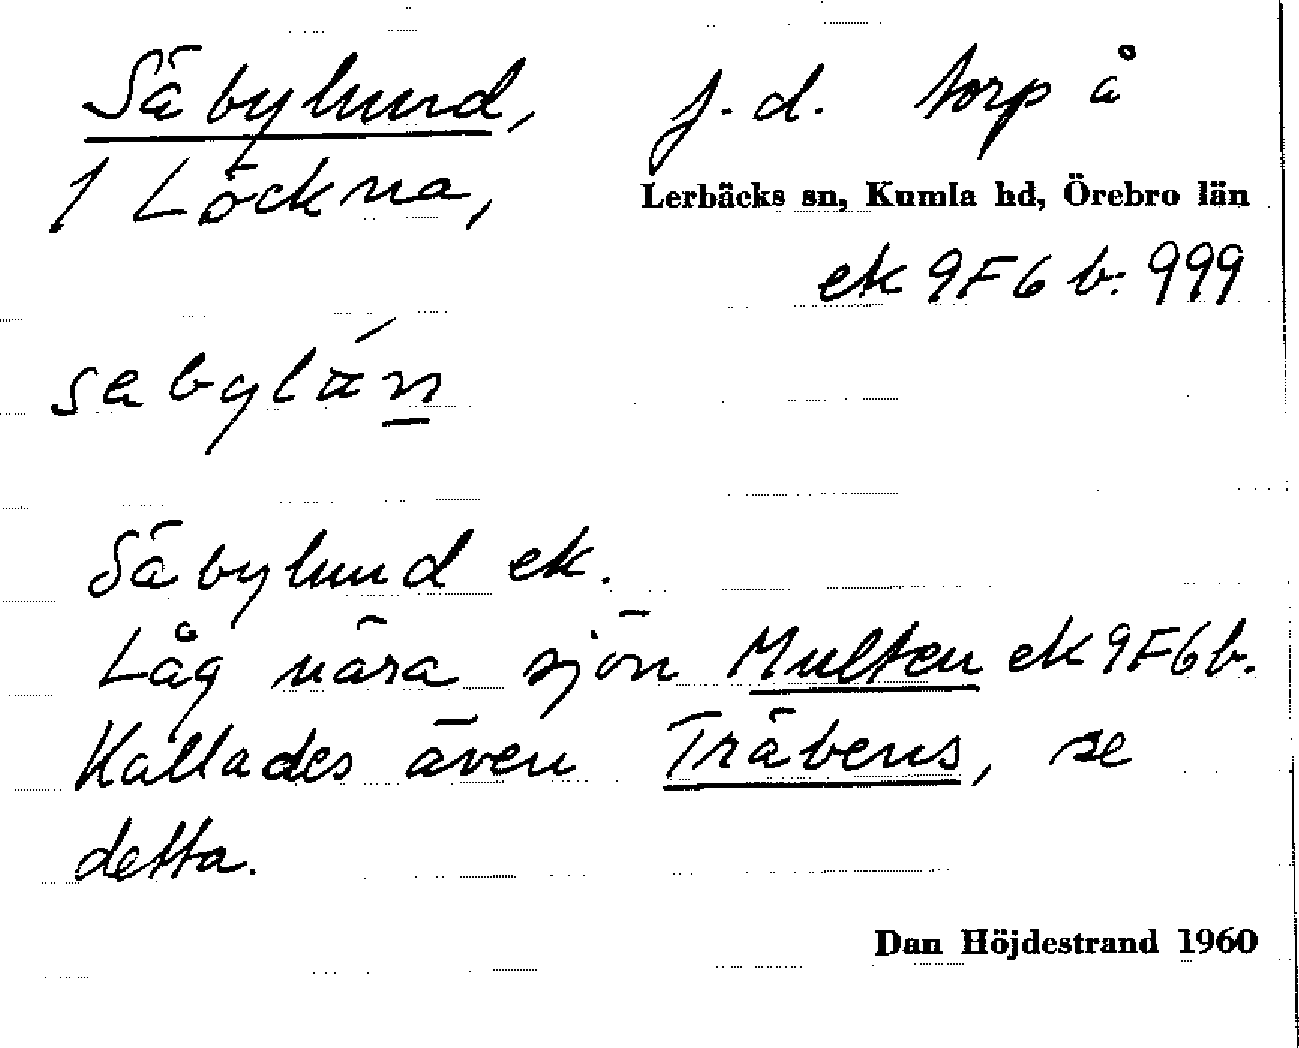 Säbylund, f.d. torp å
1 Löckna,
Lerbäcks sn, Kumla hd, Örebro län
ek 9F6 b. 999
säbylán
Säbylund ek.
Låg nära sjön Multen ek 9F6b.
Kallades även Träbens, se
detta.
Dan Höjdestrand 1960